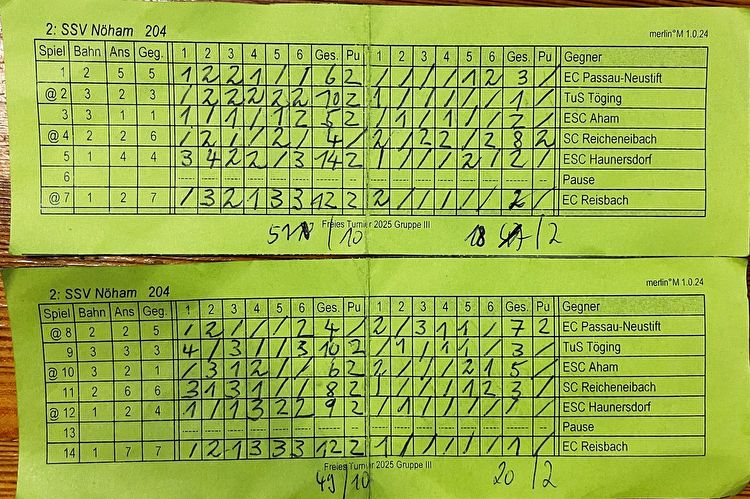 2: SSV Nöham 204 merlin°M 1.0.24
Spiel Bahn Ans Geg. 1 2 3 4 5 6 Ges. Pu 1 2 3 4 5 6 Ges. Pu Gegner
1 2 5 5 1 2 2 1 / / 6 2 / / / / 1 2 3 / EC Passau-Neustift
@ 2 3 2 3 / 2 2 2 2 2 10 2 1 / / / / / 1 / TuS Töging
3 3 1 1 1 / 1 / 1 2 5 2 / 1 / 1 / / 2 / ESC Aham
@ 4 2 2 6 / 2 / / 2 / 4 / 2 / 2 2 / 2 8 2 SC Reicheneibach
5 1 4 4 3 4 2 2 / 3 14 2 1 / / / 2 / 2 / ESC Haunersdorf
6 Pause
@ 7 1 2 7 / 3 2 1 3 3 12 2 2 / / / / / 2 / EC Reisbach
Freies Turnier 2025 Gruppe III
51 / 10 18 / 2
2: SSV Nöham 204 merlin°M 1.0.24
Spiel Bahn Ans Geg. 1 2 3 4 5 6 Ges. Pu 1 2 3 4 5 6 Ges. Pu Gegner
@ 8 2 2 5 / 2 / / / 2 4 / 2 / 3 1 1 / 7 2 EC Passau-Neustift
9 3 3 3 4 / 3 / / 3 10 2 / 1 / 1 1 / 3 / TuS Töging
@ 10 3 2 1 / 3 1 2 / / 6 2 2 / / / 2 1 5 / ESC Aham
11 2 6 6 3 1 3 1 / / 8 2 / / / / 1 2 3 / SC Reicheneibach
@ 12 1 2 4 1 / 1 3 2 2 9 2 / 1 / / / / 1 / ESC Haunersdorf
13 Pause
14 1 7 7 / 2 1 3 3 3 12 2 1 / / / / / 1 / EC Reisbach
Freies Turnier 2025 Gruppe III
49 / 10 20 / 2